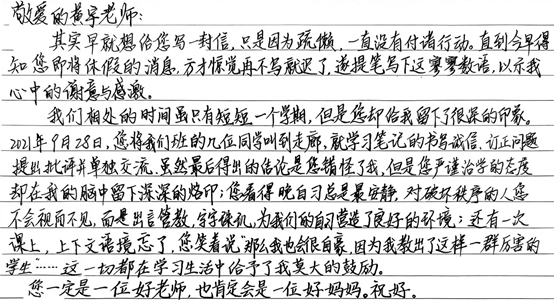 敬爱的黄宇老师:
其实早就想给您写一封信,只是因为疏懒,一直没有付诸行动。直到今早得
知您即将休假的消息,方才惊觉再不写就迟了,遂提笔写下这寥寥数语,以示我
心中的谢意与感激。
我们相处的时间虽只有短短一个学期,但是您却给我留下了很深的印象。
2021年9月28日,您将我们班的几位同学叫到走廊,就学习笔记的书写诚信、订正问题
提出批评并单独交流。虽然最后得出的结论是您错怪了我,但是您严谨治学的态度
却在我的脑中留下深深的烙印;您看得晚自习总是最安静,对破坏秩序的人您
不会视而不见,而是出言管教,字字珠玑,为我们的自习营造了良好的环境;还有一次
课上,上下文语境忘了,您笑着说“那么我也会很自豪,因为我教出了这样一群厉害的
学生”……这一切都在学习生活中给予了我莫大的鼓励。
您一定是一位好老师,也肯定会是一位好妈妈。祝好。